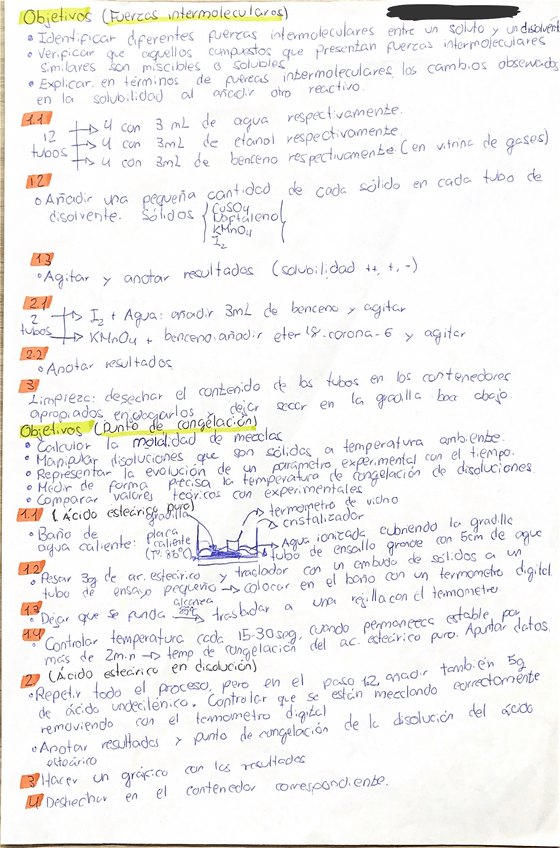 Objetivos (Fuerzas intermoleculares)
• Identificar diferentes fuerzas intermoleculares entre un soluto y un disolvente
• Verificar que aquellos compuestos que presentan fuerzas intermoleculares
similares son miscibles o solubles.
• Explicar en términos de fuerzas intermoleculares, los cambios observados
en la solubilidad al añadir otro reactivo.
1.1
12 tubos → 4 con 3 mL de agua respectivamente.
→ 4 con 3mL de etanol respectivamente.
→ 4 con 3mL de benceno respectivamente (en vitrina de gases)
1.2
• Añadir una pequeña cantidad de cada sólido en cada tubo de
disolvente. Sólidos { CuSO4
Naftaleno
KMnO4
I2 }
1.3
• Agitar y anotar resultados (solubilidad ++, +, -)
2.1
2 tubos → I2 + Agua: añadir 3mL de benceno y agitar
→ KMnO4 + benceno: añadir eter 18-corona-6 y agitar
2.2
• Anotar resultados
3
Limpieza: desechar el contenido de los tubos en los contenedores
apropiados enjuagarlos y dejar secar en la gradilla boca abajo.
Objetivos (Punto de congelación)
• Calcular la molalidad de mezclas
• Manipular disoluciones que son sólidas a temperatura ambiente.
• Representar la evolución de un parámetro experimental con el tiempo.
• Medir de forma precisa la temperatura de congelación de disoluciones
• Comparar valores teóricos con experimentales
1.1 (Ácido esteárico puro)
• Baño de
agua caliente:
gradilla
placa
caliente
→ termometro de vidrio
→ cristalizador
→ Agua ionizada cubriendo la gradilla
tubo de ensallo grande con 5cm de agua
1.2
• Pesar 3g de ac. esteárico y trasladar con un embudo de sólidos a un
tubo de ensayo pequeño → colocar en el baño con un termometro digital
1.3
• Dejar que se funda alcance → trasladar a una rejilla con el termometro
1.4
• Controlar temperatura cada 15-30 seg, cuando permanece estable por
más de 2min → temp de congelación del ac. esteárico puro. Apuntar datos.
2. (Ácido esteárico en disolución)
• Repetir todo el proceso, pero en el paso 1.2, añadir también 5g
de ácido undecilénico. Controlar que se están mezclando correctamente
removiendo con el termometro digital
• Anotar resultados y punto de congelación de la disolución del ácido
esteárico
3 Hacer un gráfico con los resultados
4 Deshechar en el contenedor correspondiente.